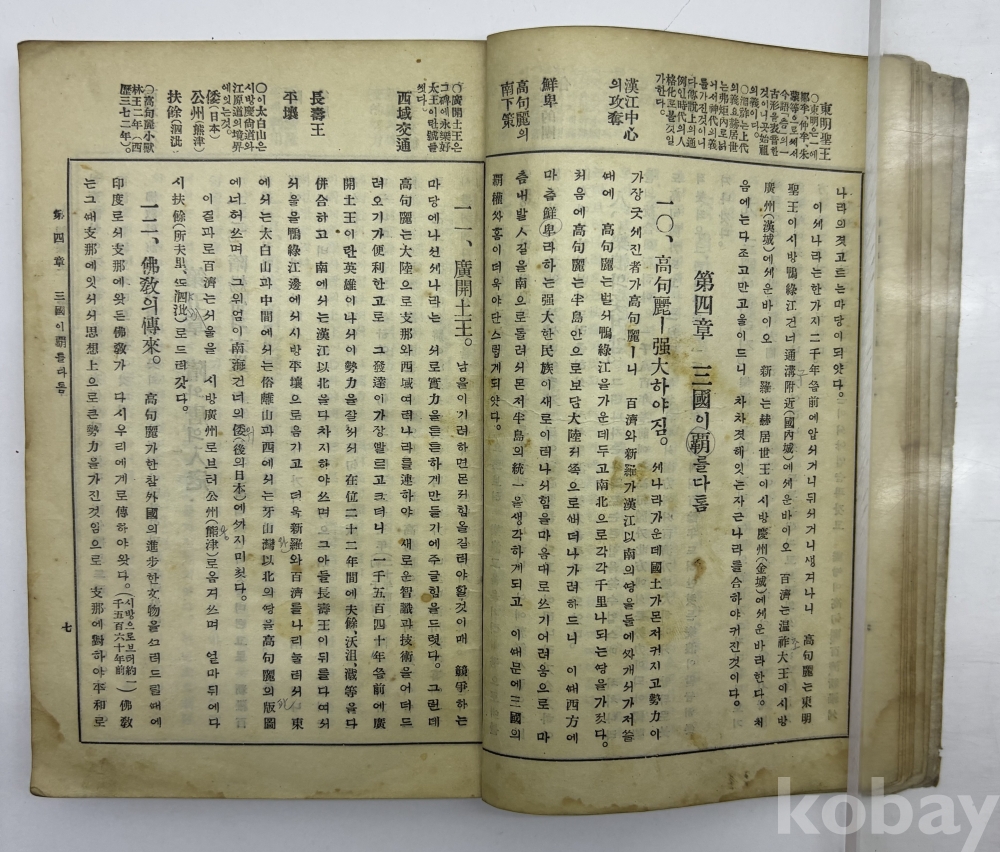 東明聖王
○東明은一에
鄒牟、仲牟、朱
蒙等으로써서
今語(솜)의一
古形을表音한
것이니곳始祖
의義이다。
漢江中心
의攻奪
鮮卑
高句麗의
南下策
나라의젓고트는마당이되얏다。
이세나라는한가지二千年씀前에압서거니뒤서거니생겨나니 高句麗는東明
聖王이시방鴨綠江건너通溝附近(國內城)에세운바이오 百濟는溫祚大王이시방
廣州(漢城)에세운바이오 新羅는赫居世王이시방慶州(金城)에세운바라한다。처
음에는다조고만고을이드니 차차겻헤잇는자근나라를合하야커진것이다。
第四章 三國이覇를다톰
一〇、高句麗ㅣ强大하야짐。 세나라가운데國土가몬저커지고勢力이
가장굿세진者가高句麗ㅣ니 百濟와新羅가漢江以南의땅을들에 가저쓸
때에 高句麗는벌서鴨綠江을가운데두고南北으로각각千里나되는땅을가젓다。
처음에高句麗는半島안으로보담大陸쪽으로뻐더나가려하드니 이때西方에
마츰鮮卑라하는强大한民族이새로이러나서힘을마음대로쓰기어려움으로 마
츰내발人길을南으로돌려서몬저半島의統一을생각하게되고 이때문에三國의
覇權싸홈이더욱야단스럽게되얏다。
○廣開土王은
그碑에永樂好
太王이란號를
썻다。
西域交通
長壽王
平壤
○이太白山은
시방慶尙道와
江原道의境界
에잇는것。
倭(日本)
公州(熊津)
扶餘(泗沘)
○高句麗小獸
林王二年(西
歷三七二年)。
一一、廣開土王。 남을이기려하면몬저힘을길러야할것이매 競爭하는
마당에나선세나라는 서로實力을튼튼하게만들기에주글힘을드렷다。그런데
高句麗는大陸으로支那와西域여러나라를連하야 새로운智識과技術을어더드
려오기가便利한고로 그發達이가장빨르고크더니 一千五百四十年씀前에廣
開土王이란英雄이나서이勢力을잘써서 在位二十二年間에夫餘、沃沮、濊等을다
併合하고 南에서는漢江以北을다차지하야쓰며 그아들長壽王이뒤를다여서
서울을鴨綠江邊에서시방平壤으로옴기고 더욱新羅와百濟를나리눌러서 東
에서는太白山과中間에서는俗離山과西에서는牙山灣以北의땅을高句麗의版圖
에너허쓰며 그위엄이南海건너의倭(後의日本)에까지미첫다。
이결과로百濟는서울을 시방廣州로브터公州(熊津)로옴겨쓰며 얼마뒤에다
시扶餘(所夫里、또泗沘)로드려갓다。
一二、佛敎의傳來。 高句麗가한참外國의進步한文物을쓰러드릴때에
印度로서支那에왓든佛敎가 다시우리에게로傳하야왓다。(시방으로브터約一千五百六十年前)佛敎
는그때支那에잇서서思想上으로큰勢力을가진것임으로 支那에對하야平和로
第四章 三國이覇를다톰
七
kobay